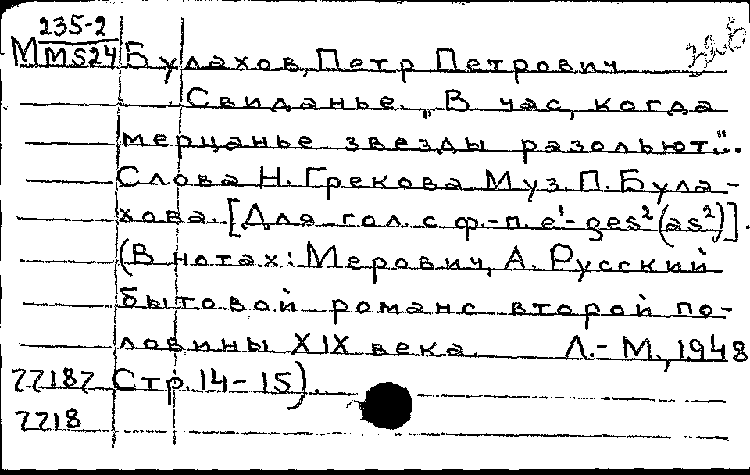 235-2
М MS24 Булахов, Петр Петрович
Свиданье. „В час, когда
мерцанье звезды разольют...".
Слова Н. Грекова Муз. П. Була-
хова. [Для гол. с ф.-п. e¹-ges² (as²)].
(В нотах: Мерович, А. Русский
бытовой романс второй по-
ловины XIX века. Л.-М., 1948
77187 Стр. 14-15).
7718